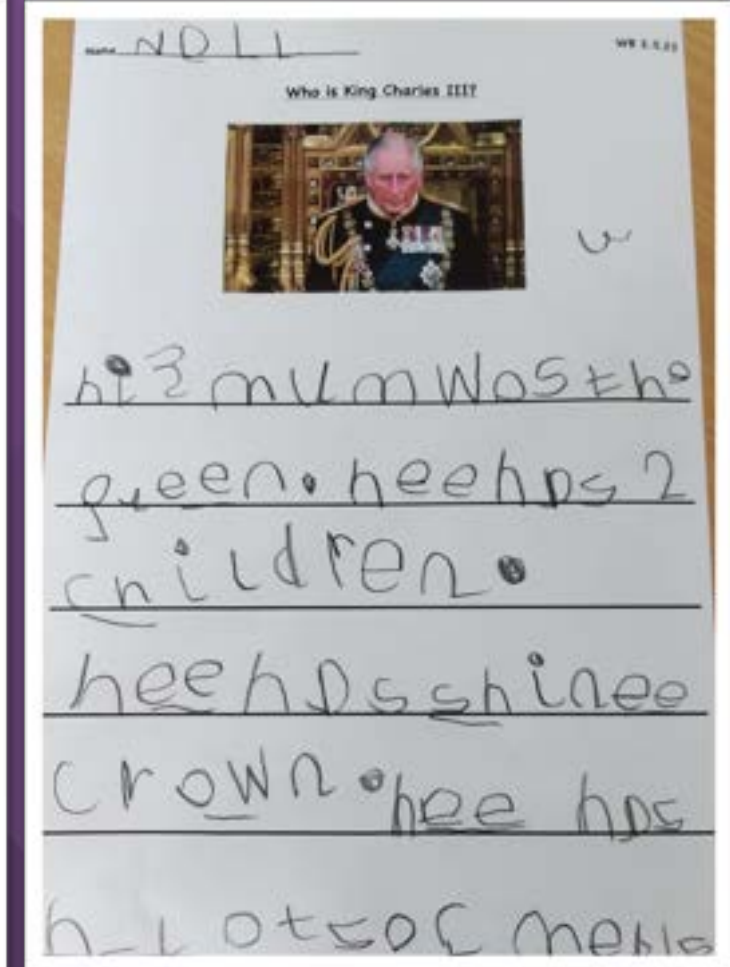 Name NOLL
WB 2.5.23
Who is King Charles III?
his mum wos the
queen. hee has 2
children.
hee has shinee
crown. hee has
lots of